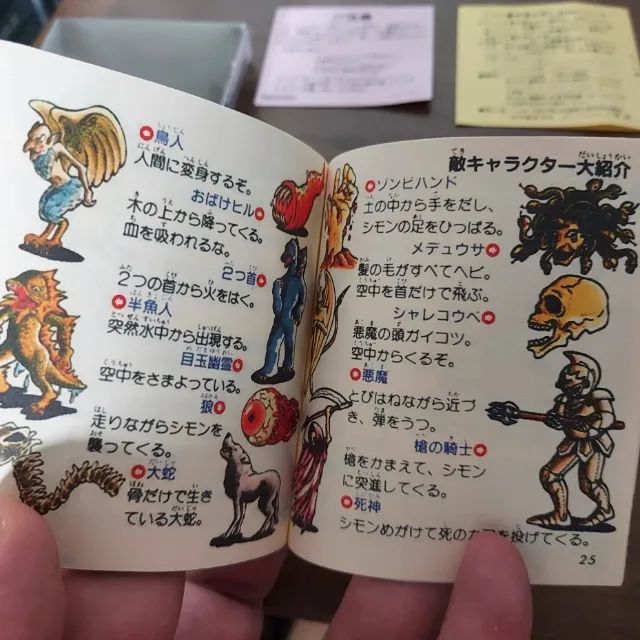 敵キャラクター大紹介
ゾンビハンド
土の中から手をだし、
シモンの足をひっぱる。
メデュウサ
髪の毛がすべてヘビ。
空中を首だけで飛ぶ。
シャレコウベ
悪魔の頭ガイコツ。
空中からくるぞ。
悪魔
とびはねながら近づ
き、弾をうつ。
槍の騎士
槍をかまえて、シモン
に突進してくる。
死神
シモンめがけて死のカマを投げてくる。
25
鳥人
人間に変身するぞ。
おばけヒル
木の上から降ってくる。
血を吸われるな。
2つ首
2つの首から火をはく。
半魚人
突然水中から出現する。
目玉幽霊
空中をさまよっている。
狼
走りながらシモンを
襲ってくる。
大蛇
骨だけで生き
ている大蛇。